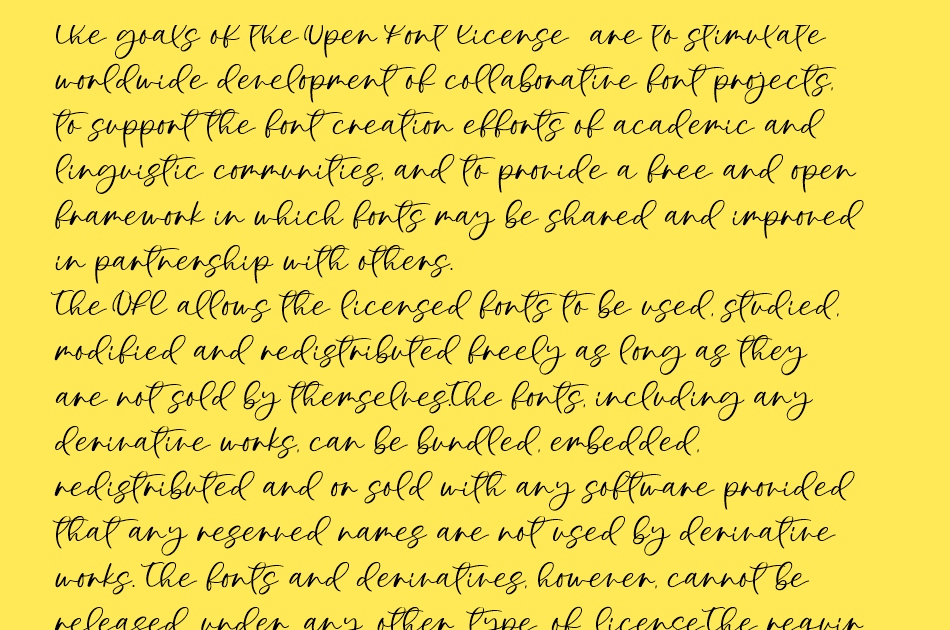 The goals of the Open Font License are to stimulate
worldwide development of collaborative font projects,
to support the font creation efforts of academic and
linguistic communities, and to provide a free and open
framework in which fonts may be shared and improved
in partnership with others.
The OFL allows the licensed fonts to be used, studied,
modified and redistributed freely as long as they
are not sold by themselves.The fonts, including any
derivative works, can be bundled, embedded,
redistributed and or sold with any software provided
that any reserved names are not used by derivative
works. The fonts and derivatives, however, cannot be
released under any other type of license.The requir